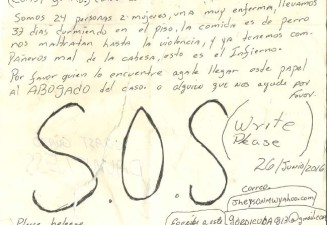 Somos 24 personas 2 mujeres, una muy enferma, llevamos
37 dias durmiendo en el piso, la comida es de perro
nos maltratan hasta la violencia, y ya tenemos com-
Pañeros mal de la cabesa, esto es el Infierno.
Por favor quien lo encuentre agale llegar este papel
al ABOGADO del caso. o alguien que nos ayude por
favor.
S.O.S
(Write
Please
26/Junio/2016
Correo.